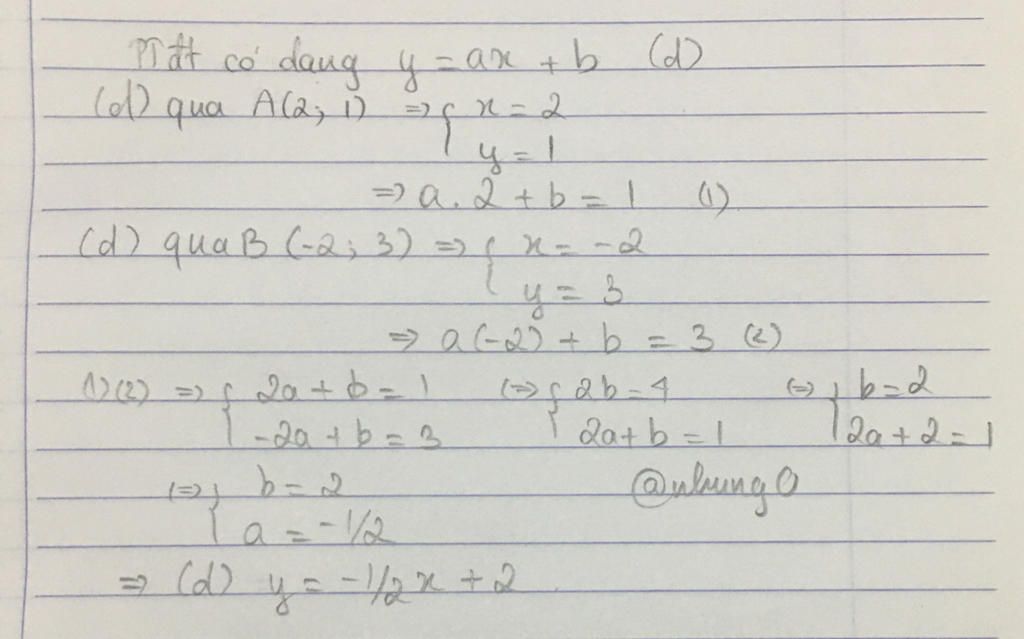 PT đt có dạng y = ax + b (d)
(d) qua A(2; 1) => { x = 2
y = 1
=> a. 2 + b = 1 (1)
(d) qua B (-2; 3) => { x = -2
y = 3
=> a(-2) + b = 3 (2)
1)(2) => { 2a + b = 1 <=> { 2b = 4 <=> { b = 2
-2a + b = 3 2a + b = 1 2a + 2 = 1
<=> { b = 2 @nhung0
a = -1/2
=> (d) y = -1/2x + 2